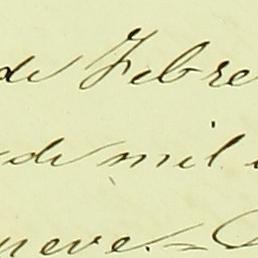 de Febre
de mil
nueve.=